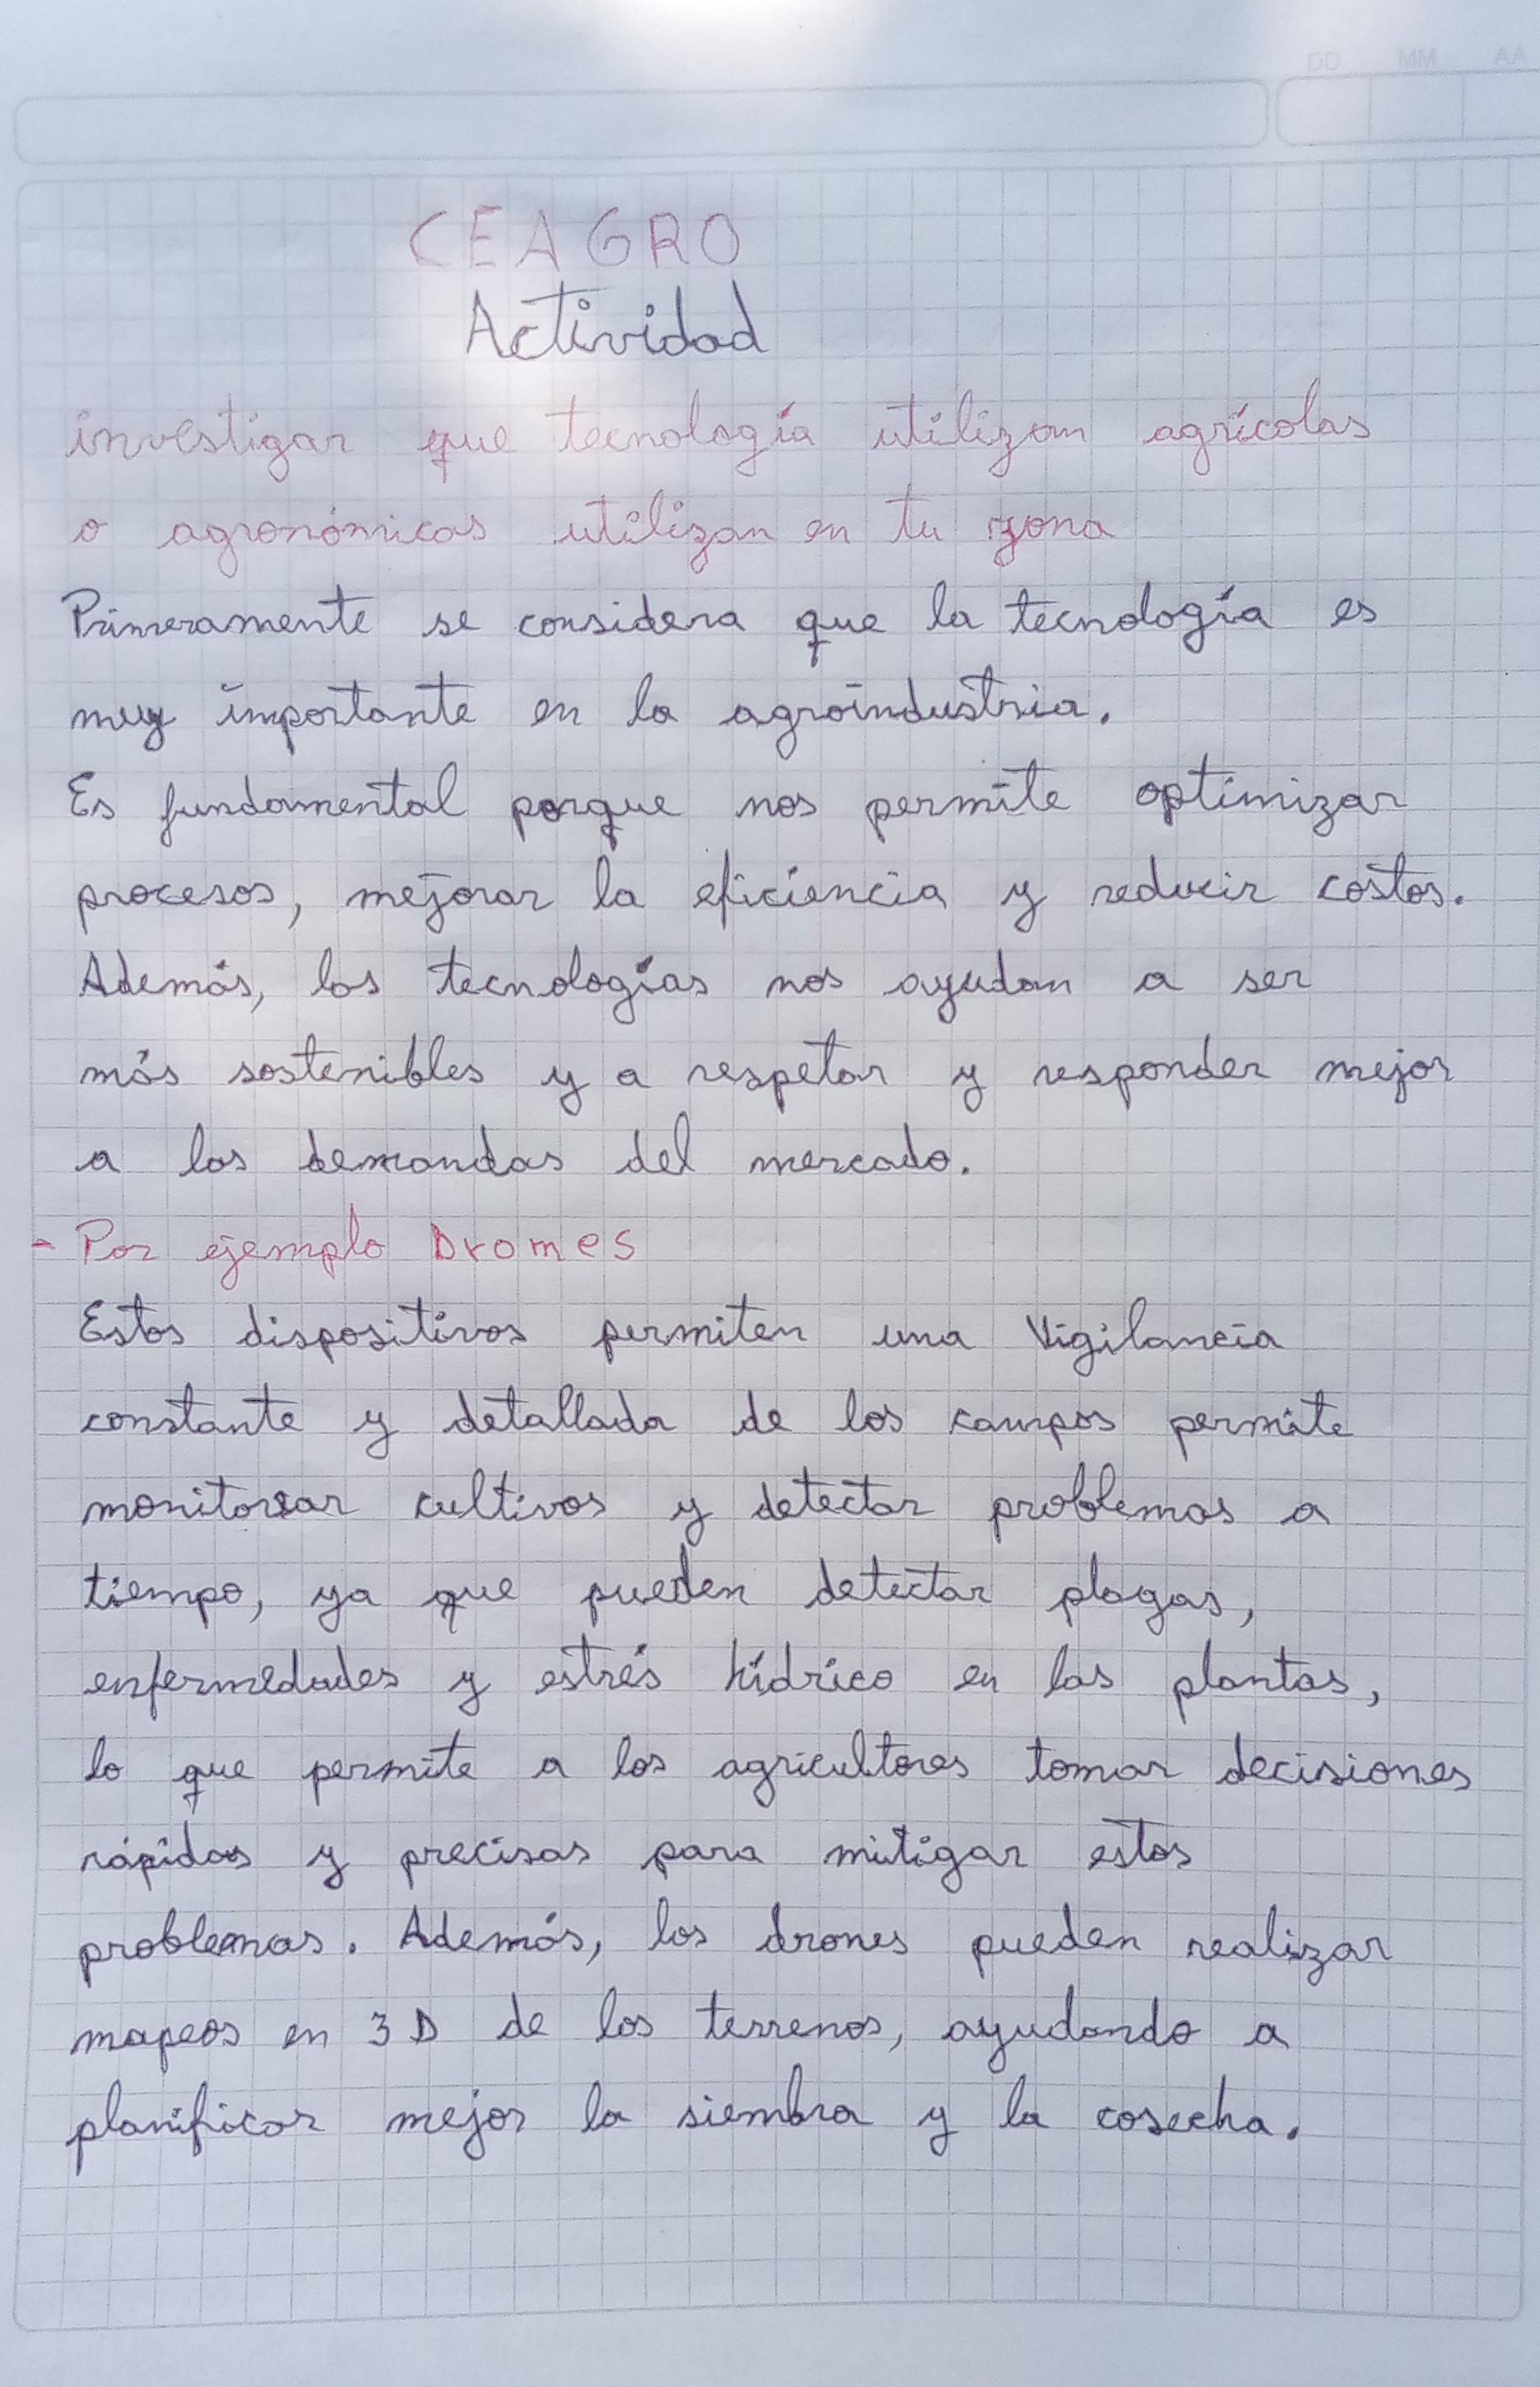 DD MM AA
CEAGRO
Actividad
investigar que tecnología utilizan agrícolas
o agronómicas utilizan en tu zona
Primeramente se considera que la tecnología es
muy importante en la agroindustria.
Es fundamental porque nos permite optimizar
procesos, mejorar la eficiencia y reducir costos.
Además, las tecnologías nos ayudan a ser
más sostenibles y a respetar y responder mejor
a las demandas del mercado.
- Por ejemplo Dromes
Estos dispositivos permiten una Vigilancia
constante y detallada de los campos permite
monitorear cultivos y detectar problemas a
tiempo, ya que pueden detectar plagas,
enfermedades y estrés hídrico en las plantas,
lo que permite a los agricultores tomar decisiones
rápidas y precisas para mitigar estos
problemas. Además, los drones pueden realizar
mapeos en 3D de los terrenos, ayudando a
planificar mejor la siembra y la cosecha.